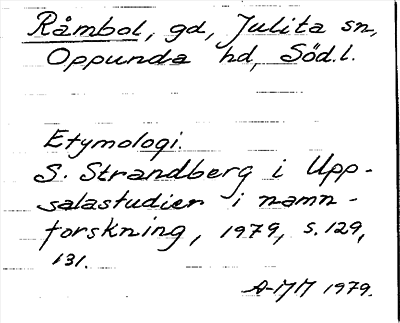 Råmbol, gd, Julita sn,
Oppunda hd, Söd.l.
Etymologi.
S. Strandberg i Upp-
salastudier i namn-
forskning, 1979, s. 129,
131.
A-MM 1979.